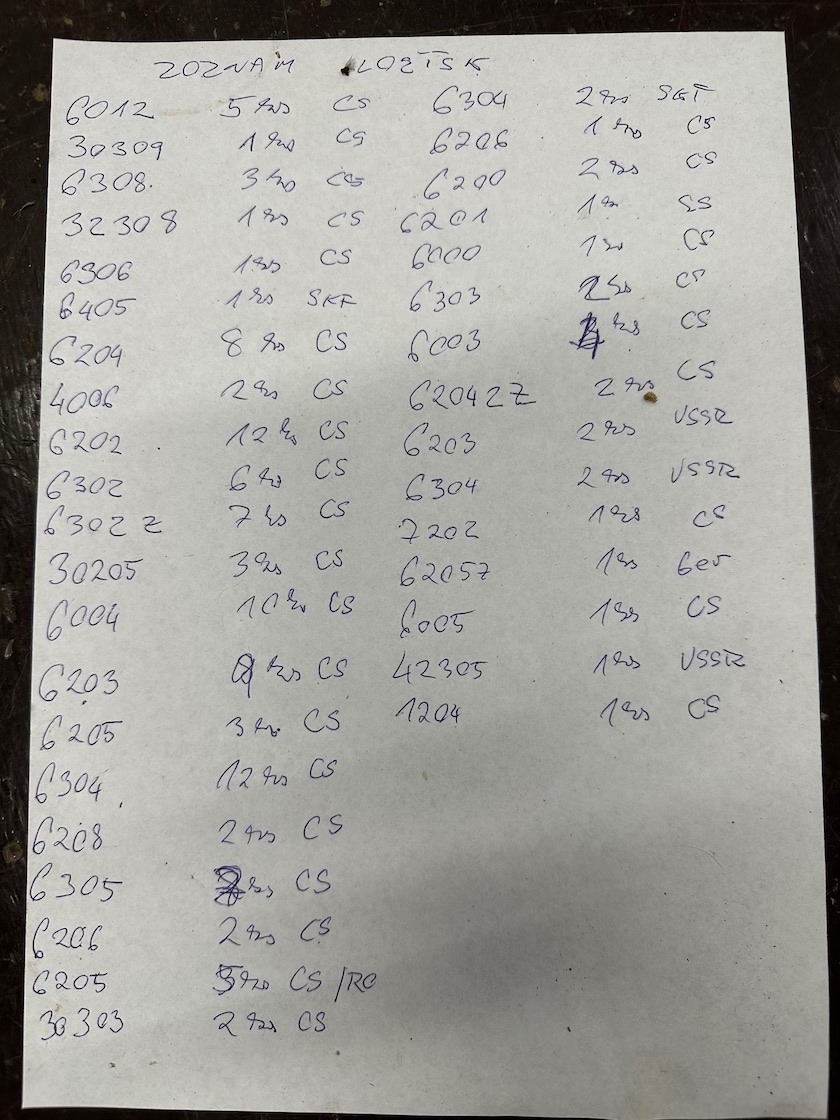 ZOZNAM LOŽISK
6012 5 ks CS
30309 1 ks CS
6308. 3 ks CS
32308 1 ks CS
6306 1 ks CS
6405 1 ks SKF
6204 8 ks CS
4006 2 ks CS
6202 12 ks CS
6302 6 ks CS
6302 Z 7 ks CS
30205 3 ks CS
6004 10 ks CS
6203 ks CS
6205 3 ks CS
6304 12 ks CS
6208 2 ks CS
6305 ks CS
6206 2 ks CS
6205 5 ks CS /RO
30303 2 ks CS
6304 2 ks SKF
6206 1 ks CS
6200 2 ks CS
6201 1 ks
6000 1 ks CS
6303 2 ks CS
6003 4 ks CS
62042Z 2 ks CS
6203 2 ks USSR
6304 2 ks USSR
7202 1 ks CS
6205Z 1 ks Ger
6005 1 ks CS
42305 1 ks USSR
1204 1 ks CS